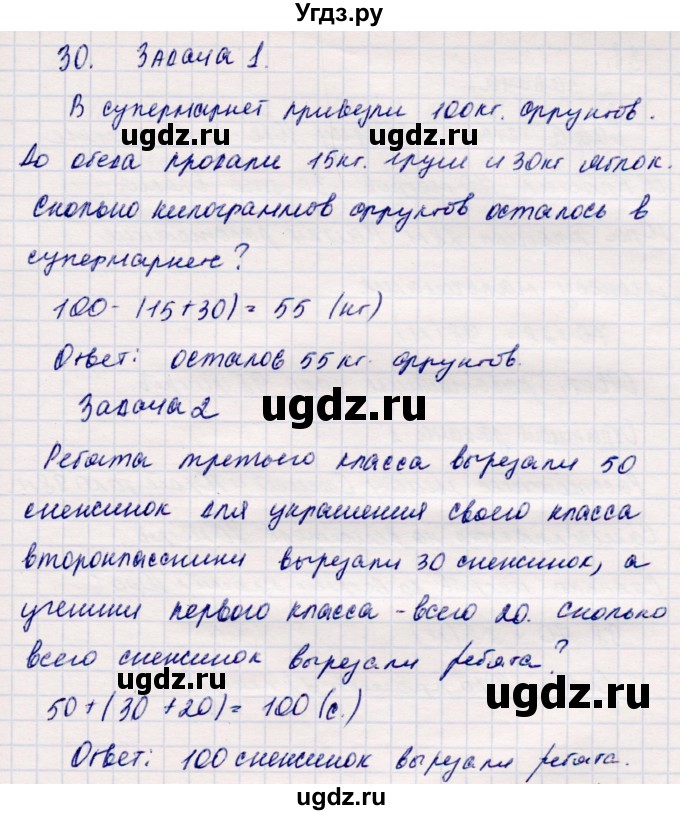 Угдз.ру
30. Задача 1.
В супермаркет привезли 100 кг. фруктов.
ugdz.ru ugdz.ru
До обеда продали 15 кг. груш и 30 кг яблок.
Сколько килограммов фруктов осталось в
супермаркете?
100 - (15 + 30) = 55 (кг)
Ответ: осталов 55 кг. фруктов.
ugdz.ru
Задача 2
Ребята третьего класса вырезали 50
снежинок для украшения своего класса
второклассники вырезали 30 снежинок, а
ученики первого класса - всего 20. Сколько
всего снежинок вырезали ребята?
ugdz.ru ugdz.ru
50 + (30 + 20) = 100 (с.)
Ответ: 100 снежинок вырезали ребята.
ugdz.ru